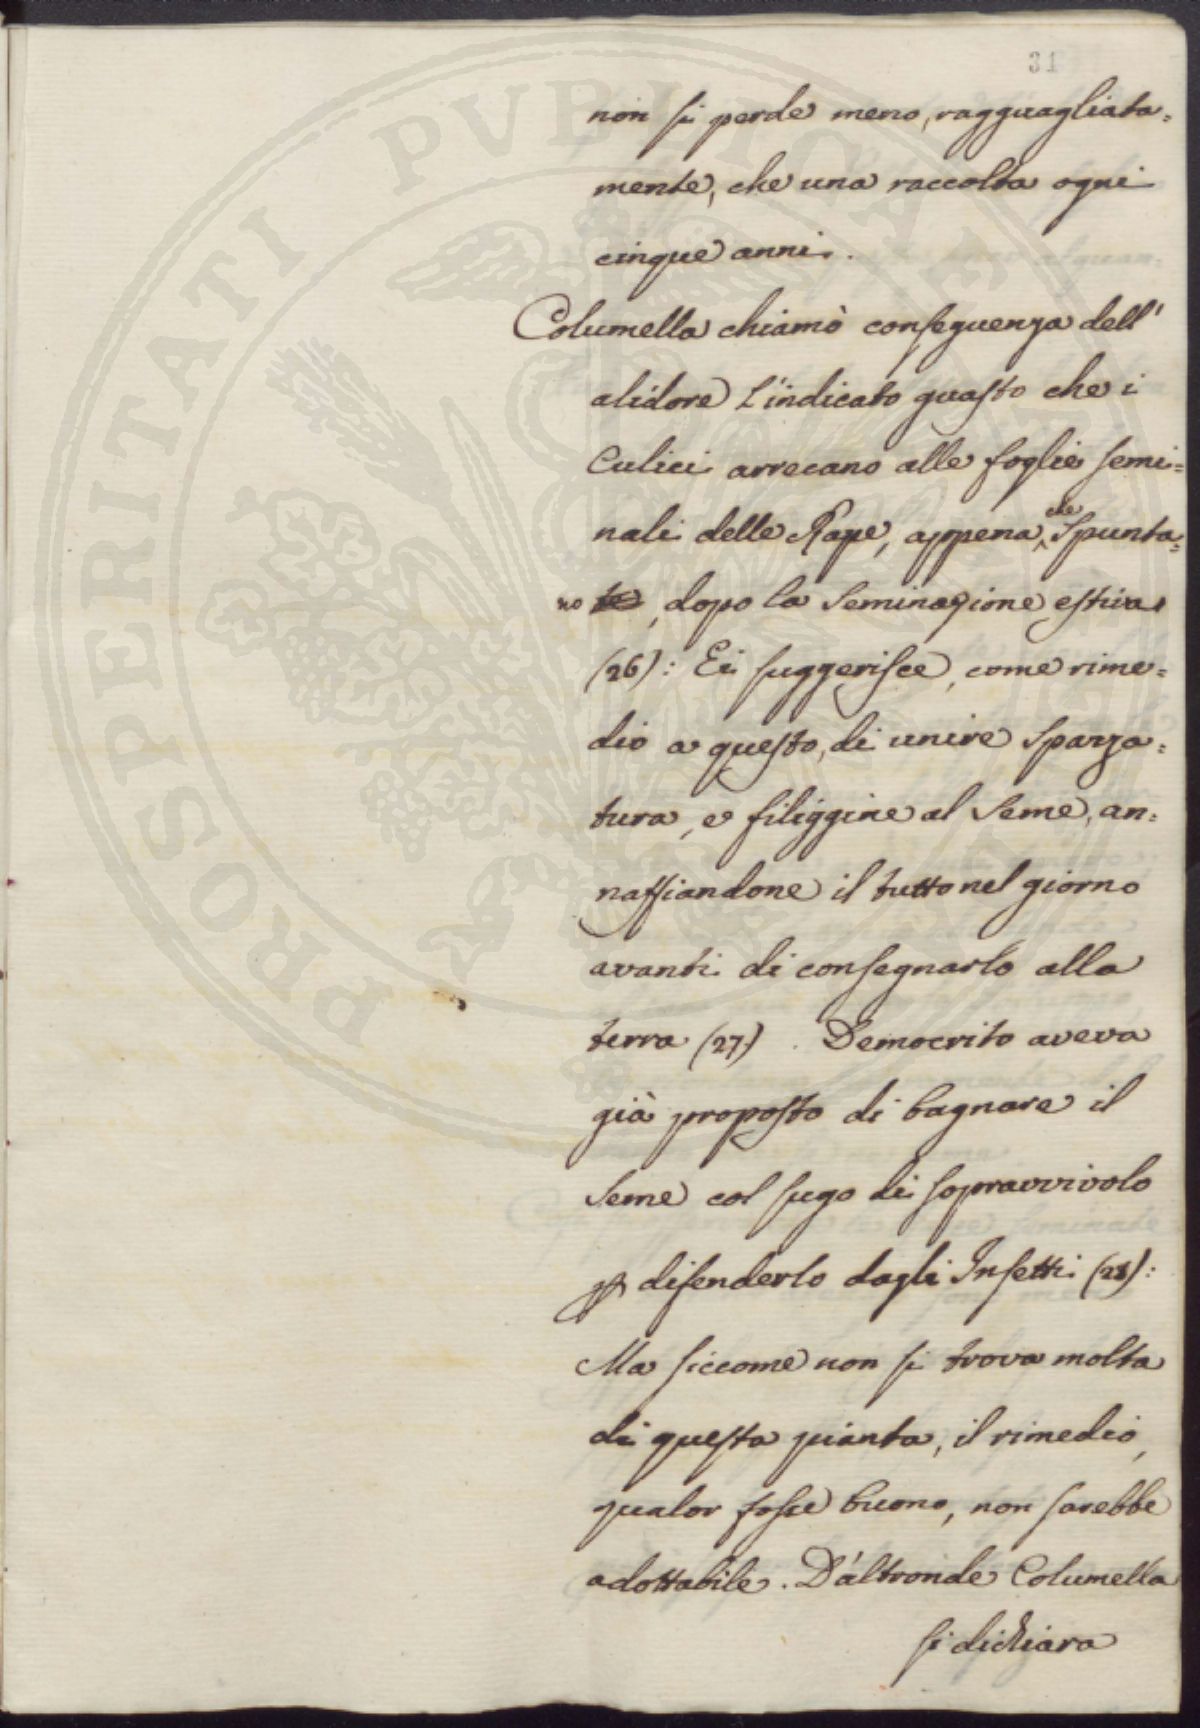 31
non si perde meno, ragguagliata=
mente, che una raccolta ogni
cinque anni.
Columella chiamò conseguenza dell'
alidore l'indicato guasto che i
Culici arrecano alle foglie semi=
nali delle Rape, appena che spunta=
no, dopo la seminazione estiva
(26): Ei suggerisce, come rime=
dio a questo, di unire spazza=
tura, e filiggine al seme, an=
naffiandone il tutto nel giorno
avanti di consegnarlo alla
terra (27). Democrito aveva
già proposto di bagnare il
seme col sugo di sopravvivolo
p difenderlo dagli Insetti (28):
Ma siccome non si trova molta
di questa pianta, il rimedio,
qualor fosse buono, non sarebbe
adottabile. D'altronde Columella
si dichiara
PROSPERITATI PVBLICAE